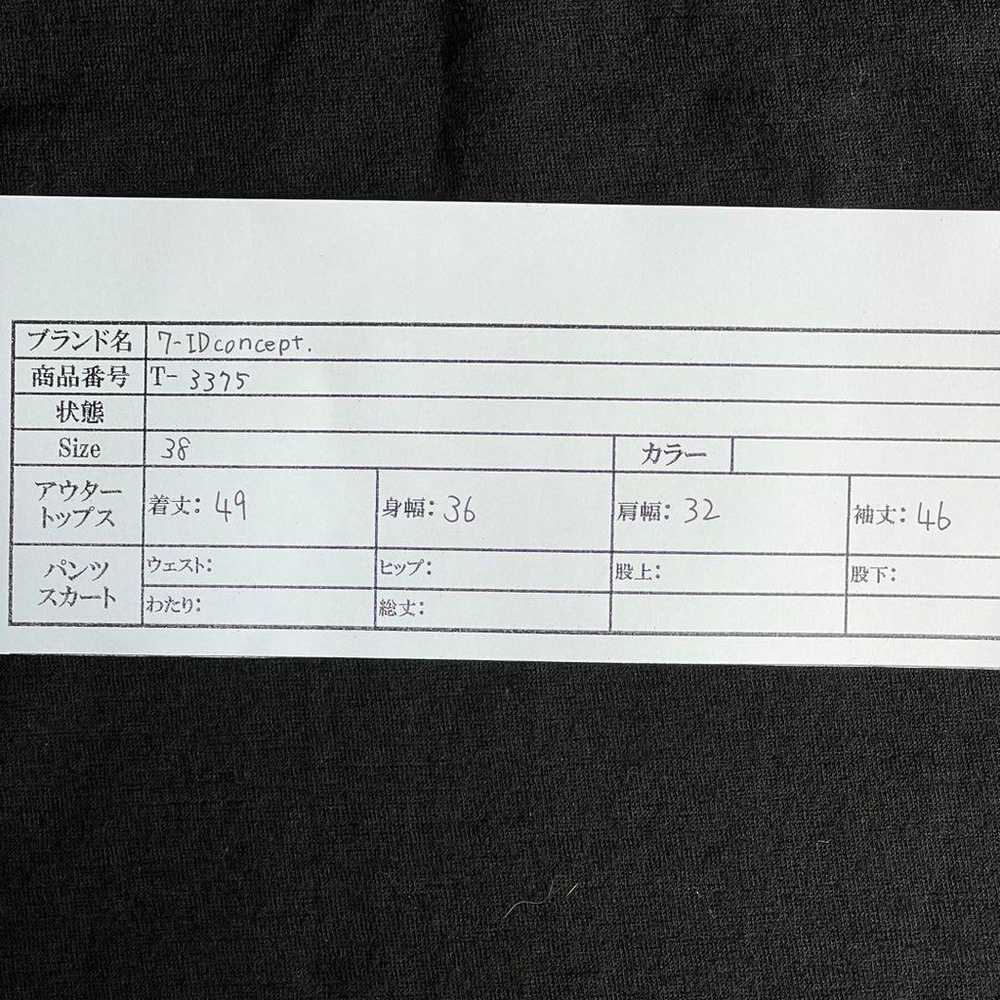 ブランド名 7-IDconcept.
商品番号 T- 3375
状態
Size 38 カラー
アウター
トップス 着丈: 49 身幅: 36 肩幅: 32 袖丈: 46
パンツ
スカート ウェスト: ヒップ: 股上: 股下:
わたり: 総丈: